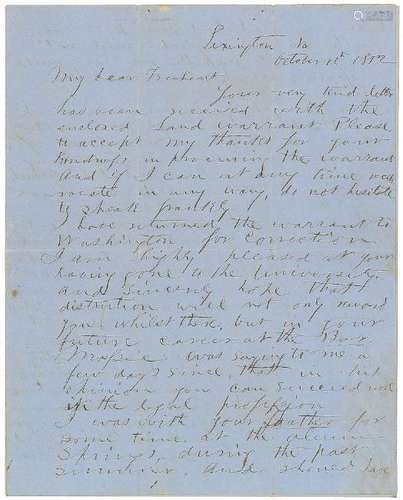 Lexington Va
October 1st 1852
My dear
Your very kind letter
has been received with the
enclosed Land warrant. Please
to accept my thanks for your
kindness in procuring the warrant
and if I can at any time
in any way, do not hesitate
to speak frankly
I have returned the warrant to
Washington for correction
I am highly pleased at your
having gone to the University
and sincerely hope that
distinction will not only reward
you whilst there, but in your
future career at the Bar
Massie was saying to me a
few days since, that in his
opinion you can succeed well
in the legal profession
I was with your father for
some time at the Alum
Springs, during the past
summer, and should have